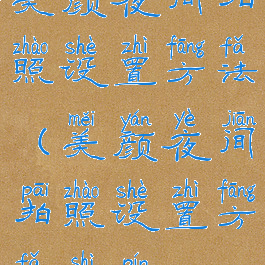 美颜夜间拍
zhào shè zhì fāng fǎ
照设置方法
měi yán yè jiān
（美颜夜间
pāi zhào shè zhì fāng
拍照设置方
fǎ shì pín